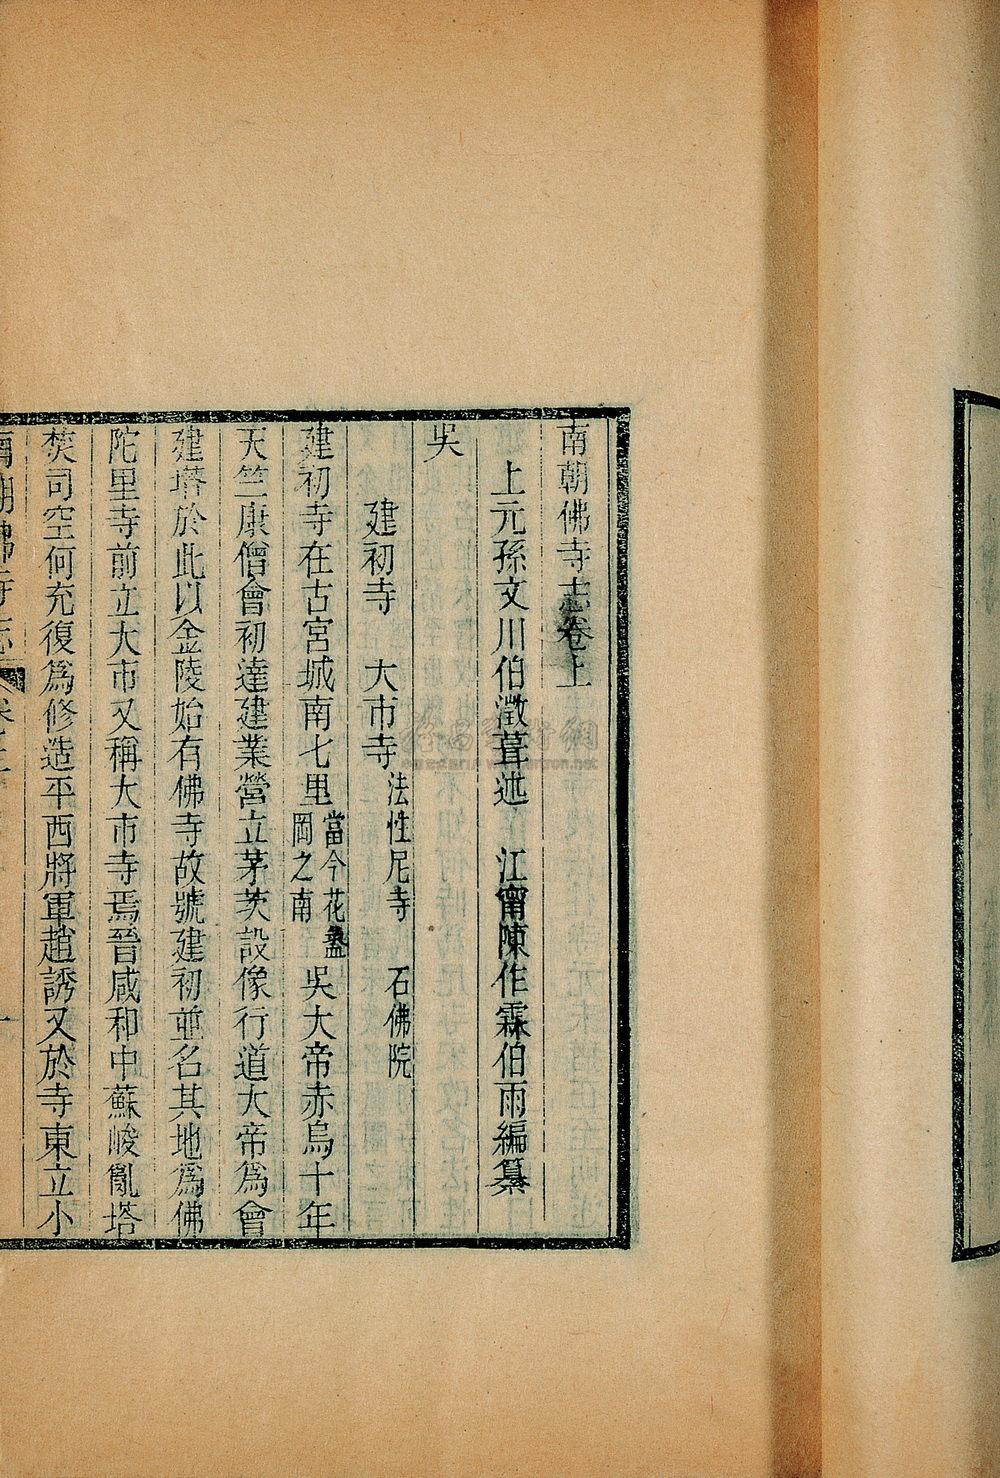 南朝佛寺志卷上
上元孫文川伯澂葺述　江甯陳作霖伯雨編纂
吳
建初寺　大市寺　法性尼寺　石佛院
建初寺在古宮城南七里當今花盝岡之南吳大帝赤烏十年
天竺康僧會初達建業營立茅茨設像行道大帝爲會
建塔於此以金陵始有佛寺故號建初並名其地爲佛
陀里寺前立大市又稱大市寺焉晉咸和中蘇峻亂塔
焚司空何充復爲修造平西將軍趙誘又於寺東立小
南朝佛寺志 卷上 一